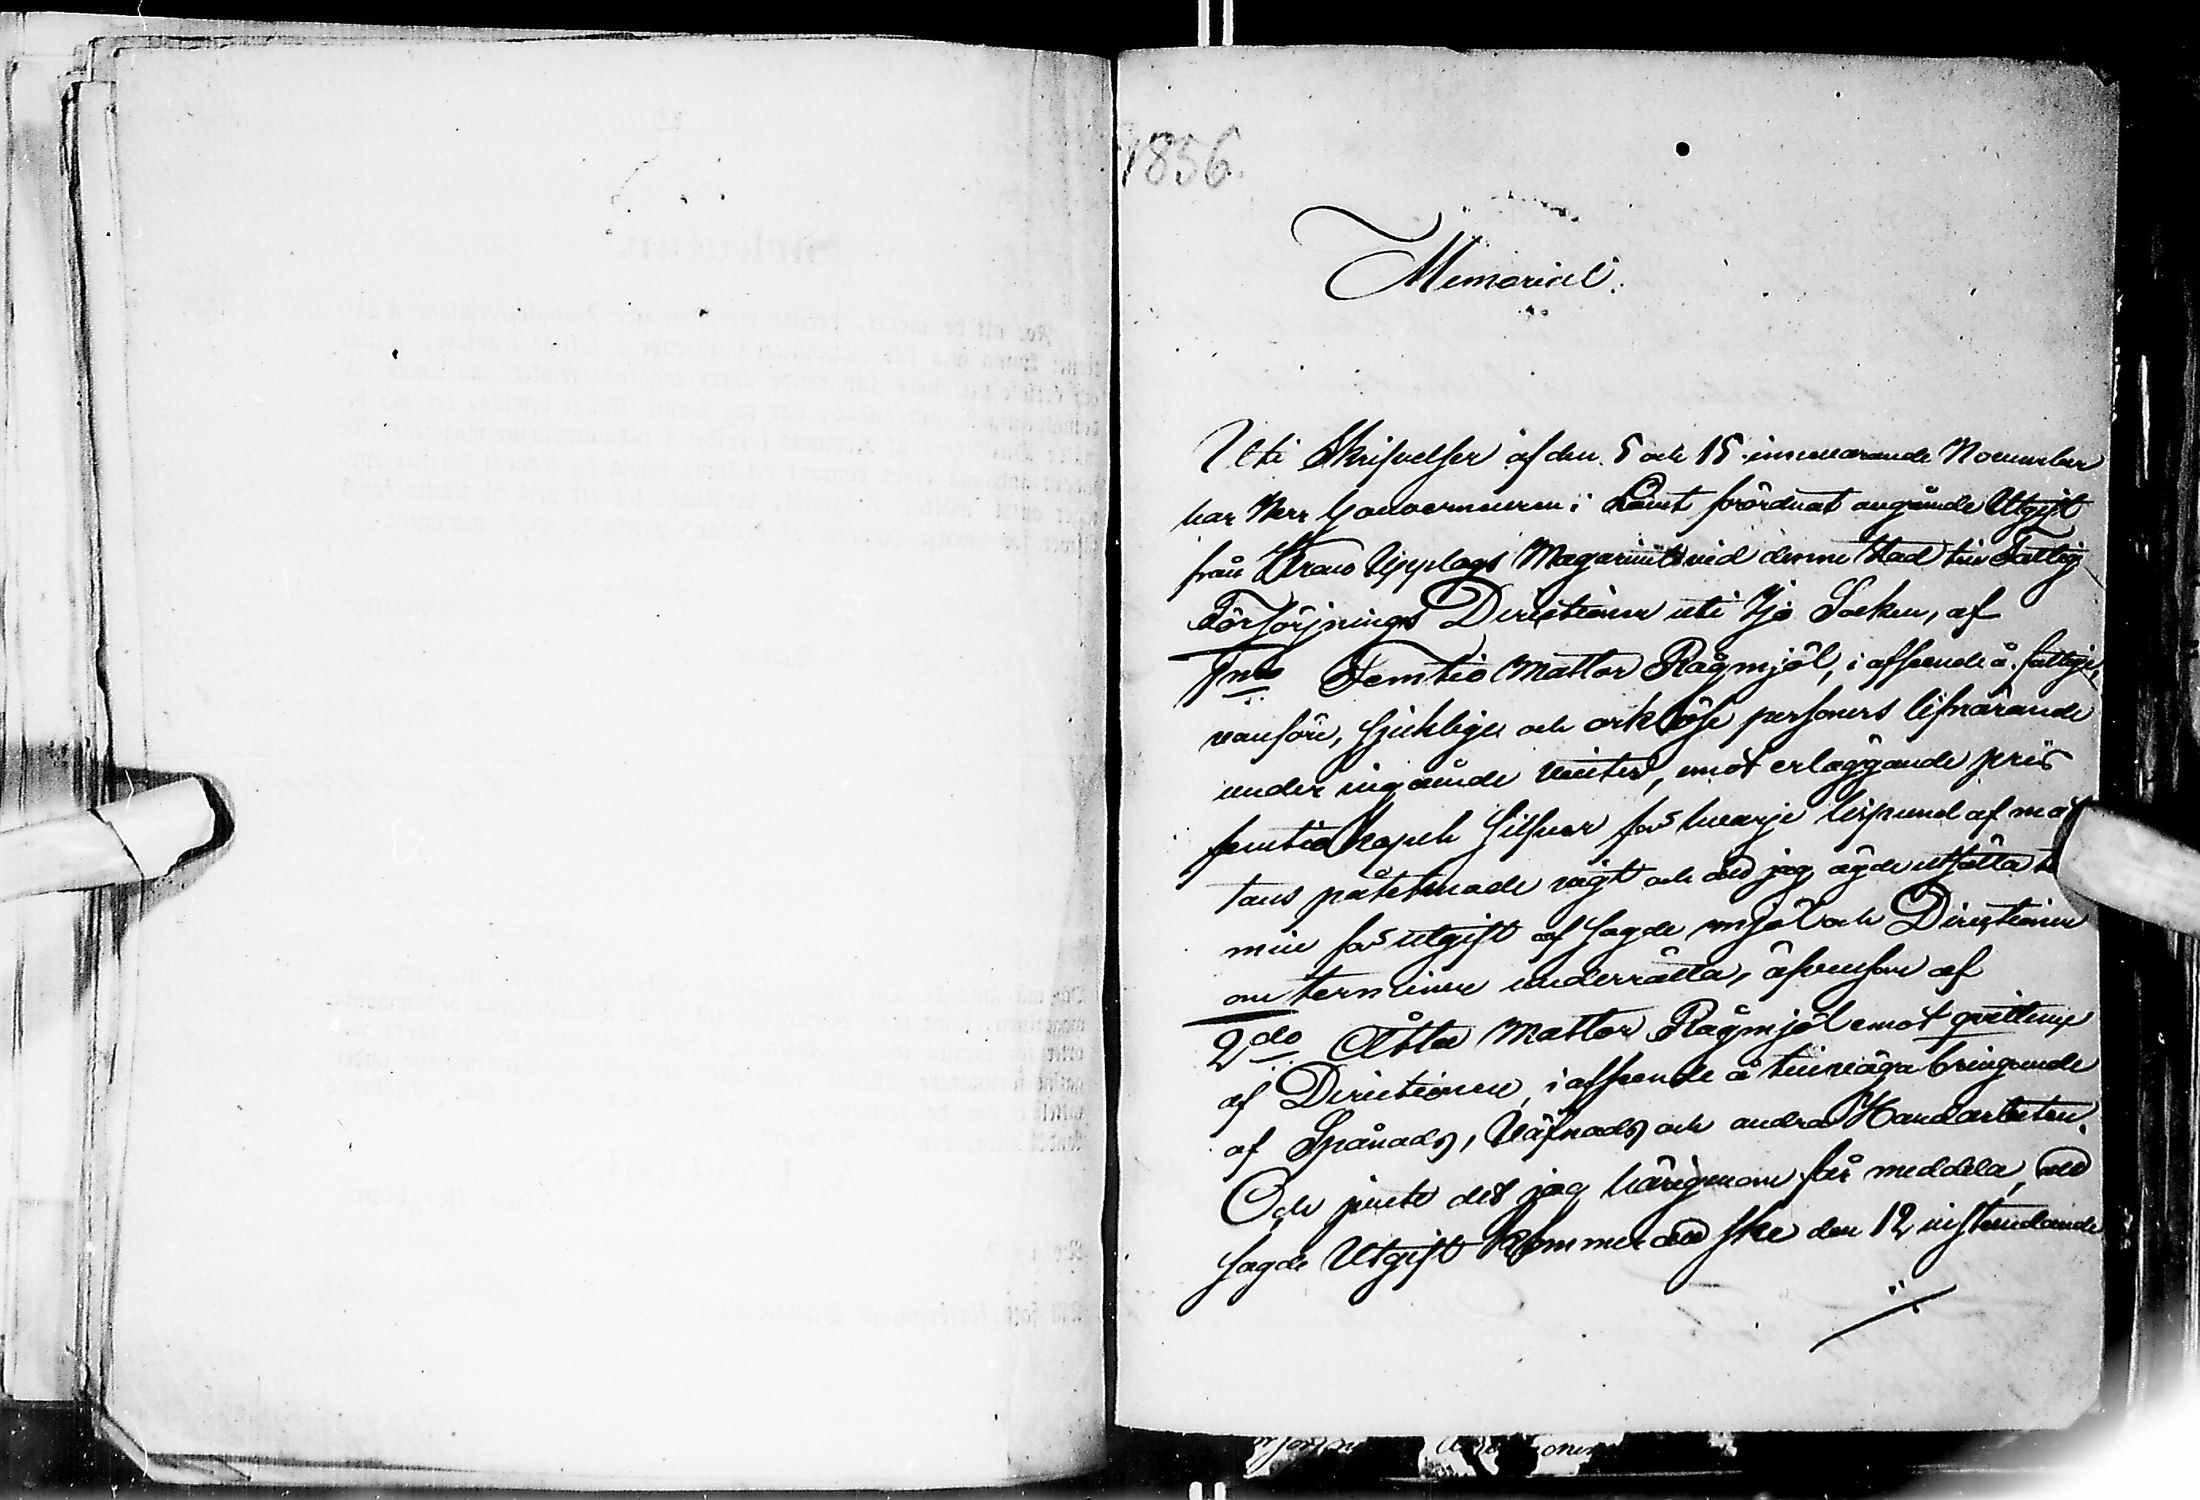 1856.
Memorial.
Uti Skrifvelser af den 5 och 15 innevarande November
har Herr Gouverneuren i Länet förordnat angående Utgift
från Krono Upplags Magasinet vid denne Stad till Fattig
Försörjnings Directionen uti Ijo Socken, af
1mo Femtio Mattor Rågmjöl, i afseende å fattige,
vanföre, sjuklige och orklöse personers lifnärande
under ingående vinter, emot erläggande pris
femtio kopek Silfver för hvarje lispund af mat
tans påtecknade vigt och att jag ägde utsätta
min för utgift af sagde mjöl och Directionen
om terminen underrätta, äfvensom af
2do Åtta Mattor Rågmjöl emot qvittens
af Directionen, i afseende å tillväga bringande
af Spånads, Väfnads och andra Handarbeten.
Och jemte det jag härigenom får meddela, att
sagde Utgift kommer att ske den 12 nästkommande